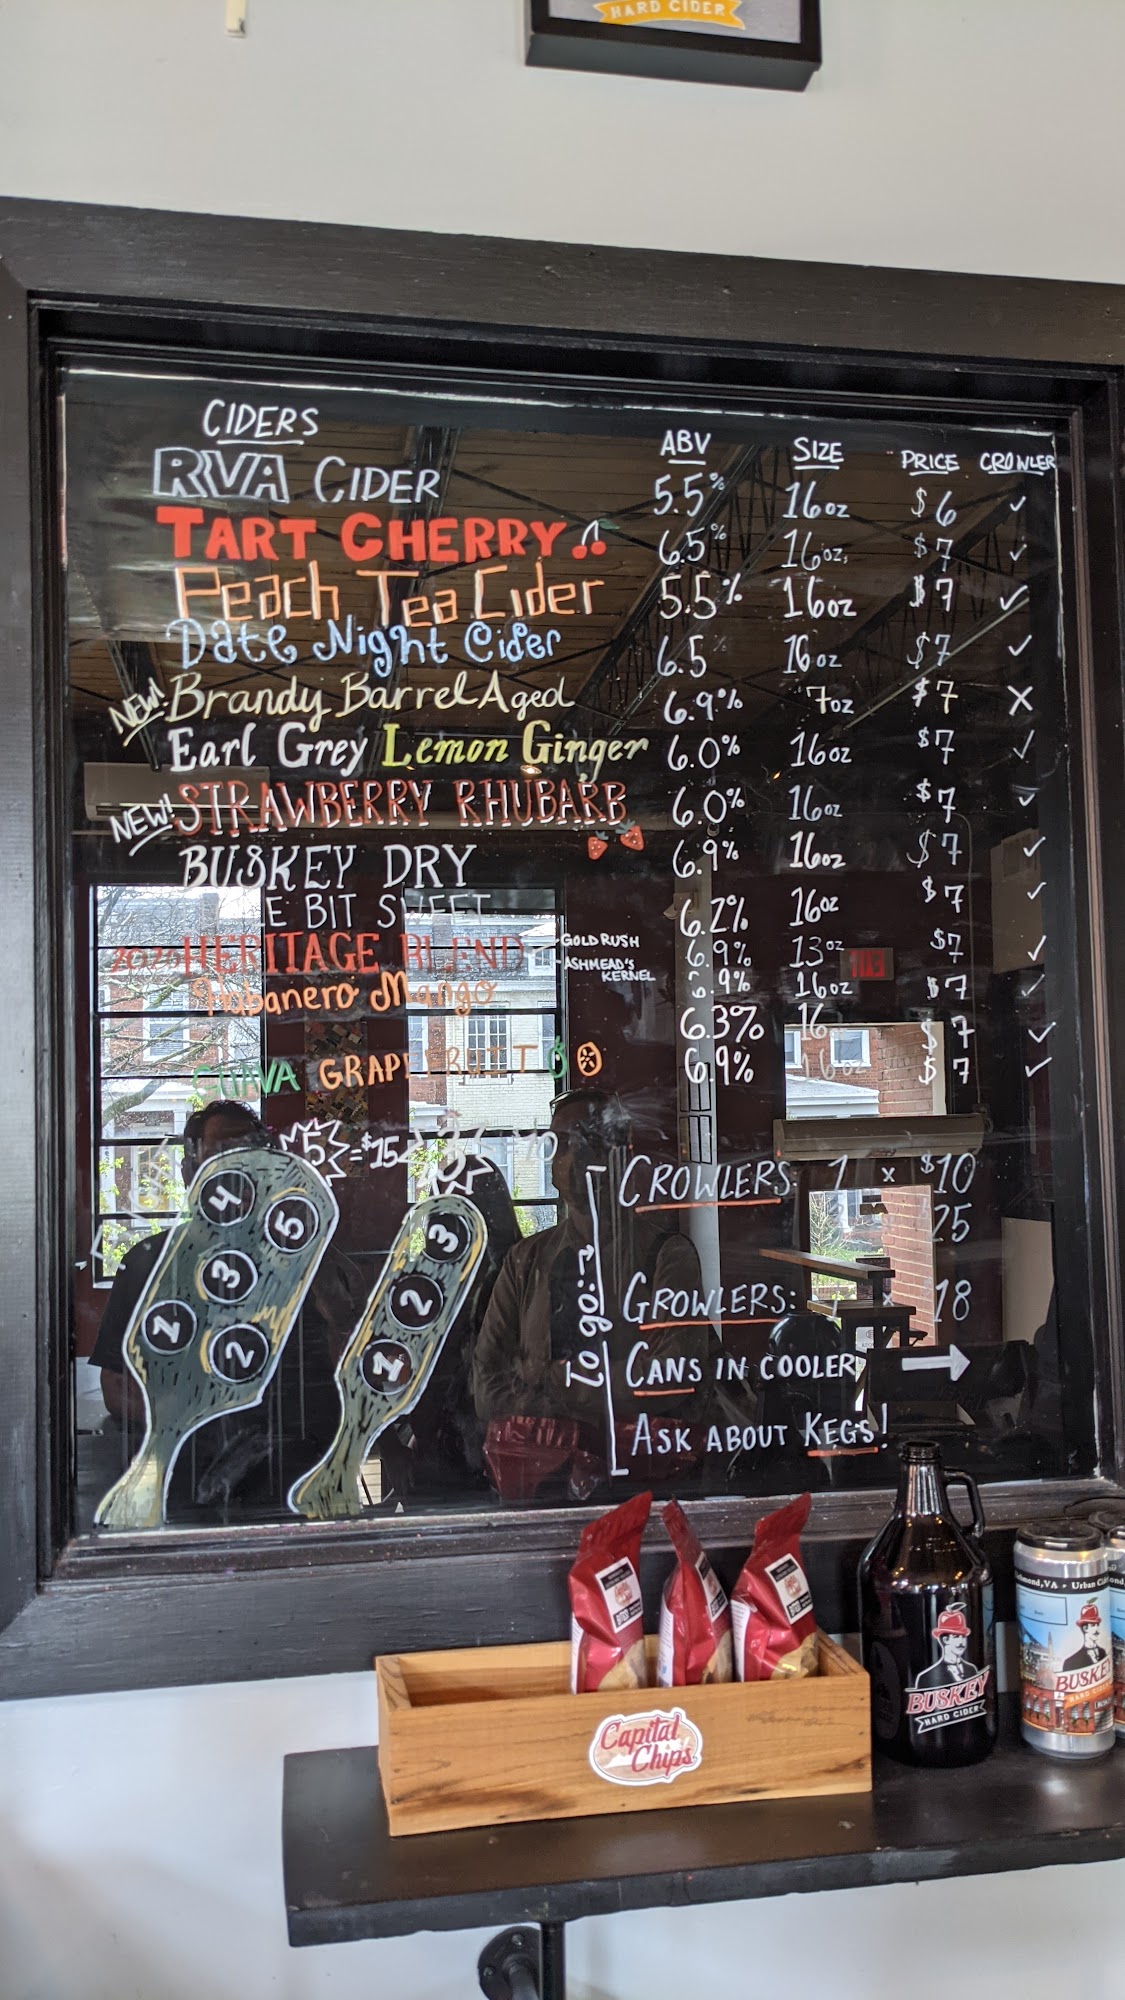 HARD CIDER
CIDERS ABV SIZE PRICE CROWLER
RVA CIDER 5.5% 16oz $6 ✓
TART CHERRY 6.5% 16oz. $7 ✓
Peach Tea Cider 5.5% 16oz $7 ✓
Date Night Cider 6.5 16oz $7 ✓
NEW! Brandy Barrel Aged 6.9% 7oz $7 X
Earl Grey Lemon Ginger 6.0% 16oz $7 ✓
NEW! STRAWBERRY RHUBARB 6.0% 16oz $7 ✓
BUSKEY DRY 6.9% 16oz $7 ✓
E BIT SWEET 6.2% 16oz $7 ✓
2020 HERITAGE BLEND 6.9% 13oz $7 ✓
GOLD RUSH
ASHMEAD'S
KERNEL
Habanero Mango 6.9% 16oz $7 ✓
6.3% 16 $7 ✓
GUAVA GRAPEFRUIT 6.9% 16oz $7 ✓
5 = $15 3 = 10
4 5 3 1 2
3 2 1
TO-GO
CROWLERS: 1 x $10
25
GROWLERS: x 18
CANS IN COOLER
ASK ABOUT KEGS!
Capital
Chips
BUSKEY
HARD CIDER
Richmond, VA • Urban Ci
BUSKEY
HARD CIDER